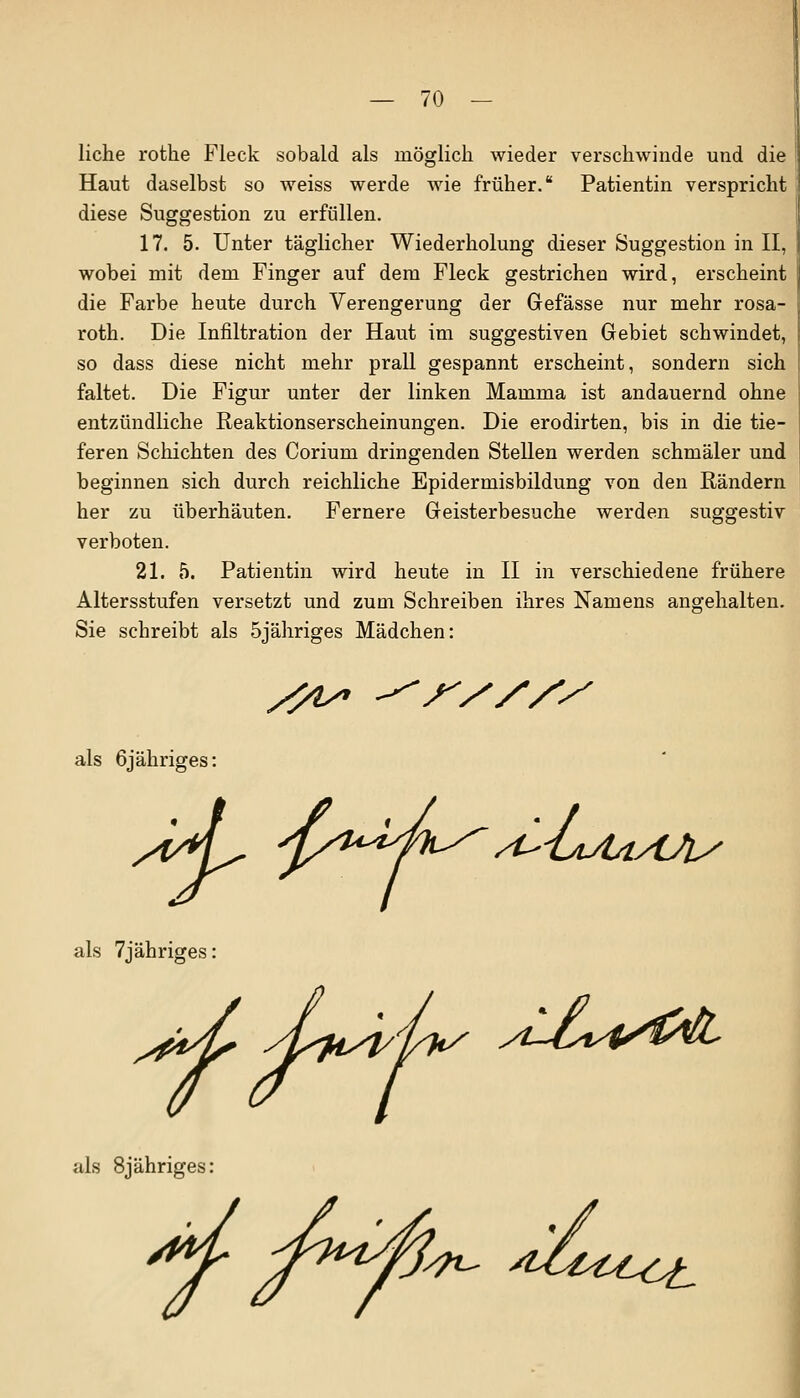 — 70 —
liche rothe Fleck sobald als möglich wieder verschwinde und die
Haut daselbst so weiss werde wie früher.“ Patientin verspricht
diese Suggestion zu erfüllen.
17. 5. Unter täglicher Wiederholung dieser Suggestion in II,
wobei mit dem Finger auf dem Fleck gestrichen wird, erscheint
die Farbe heute durch Verengerung der Gefässe nur mehr rosa-
roth. Die Infiltration der Haut im suggestiven Gebiet schwindet,
so dass diese nicht mehr prall gespannt erscheint, sondern sich
faltet. Die Figur unter der linken Mamma ist andauernd ohne
entzündliche Reaktionserscheinungen. Die erodirten, bis in die tie-
feren Schichten des Corium dringenden Stellen werden schmäler und
beginnen sich durch reichliche Epidermisbildung von den Rändern
her zu überhäuten. Fernere Geisterbesuche werden suggestiv
verboten.
21. 5. Patientin wird heute in II in verschiedene frühere
Altersstufen versetzt und zum Schreiben ihres Namens angehalten.
Sie schreibt als 5jähriges Mädchen:
als 6jähriges:
als 7jähriges:
als 8jähriges: